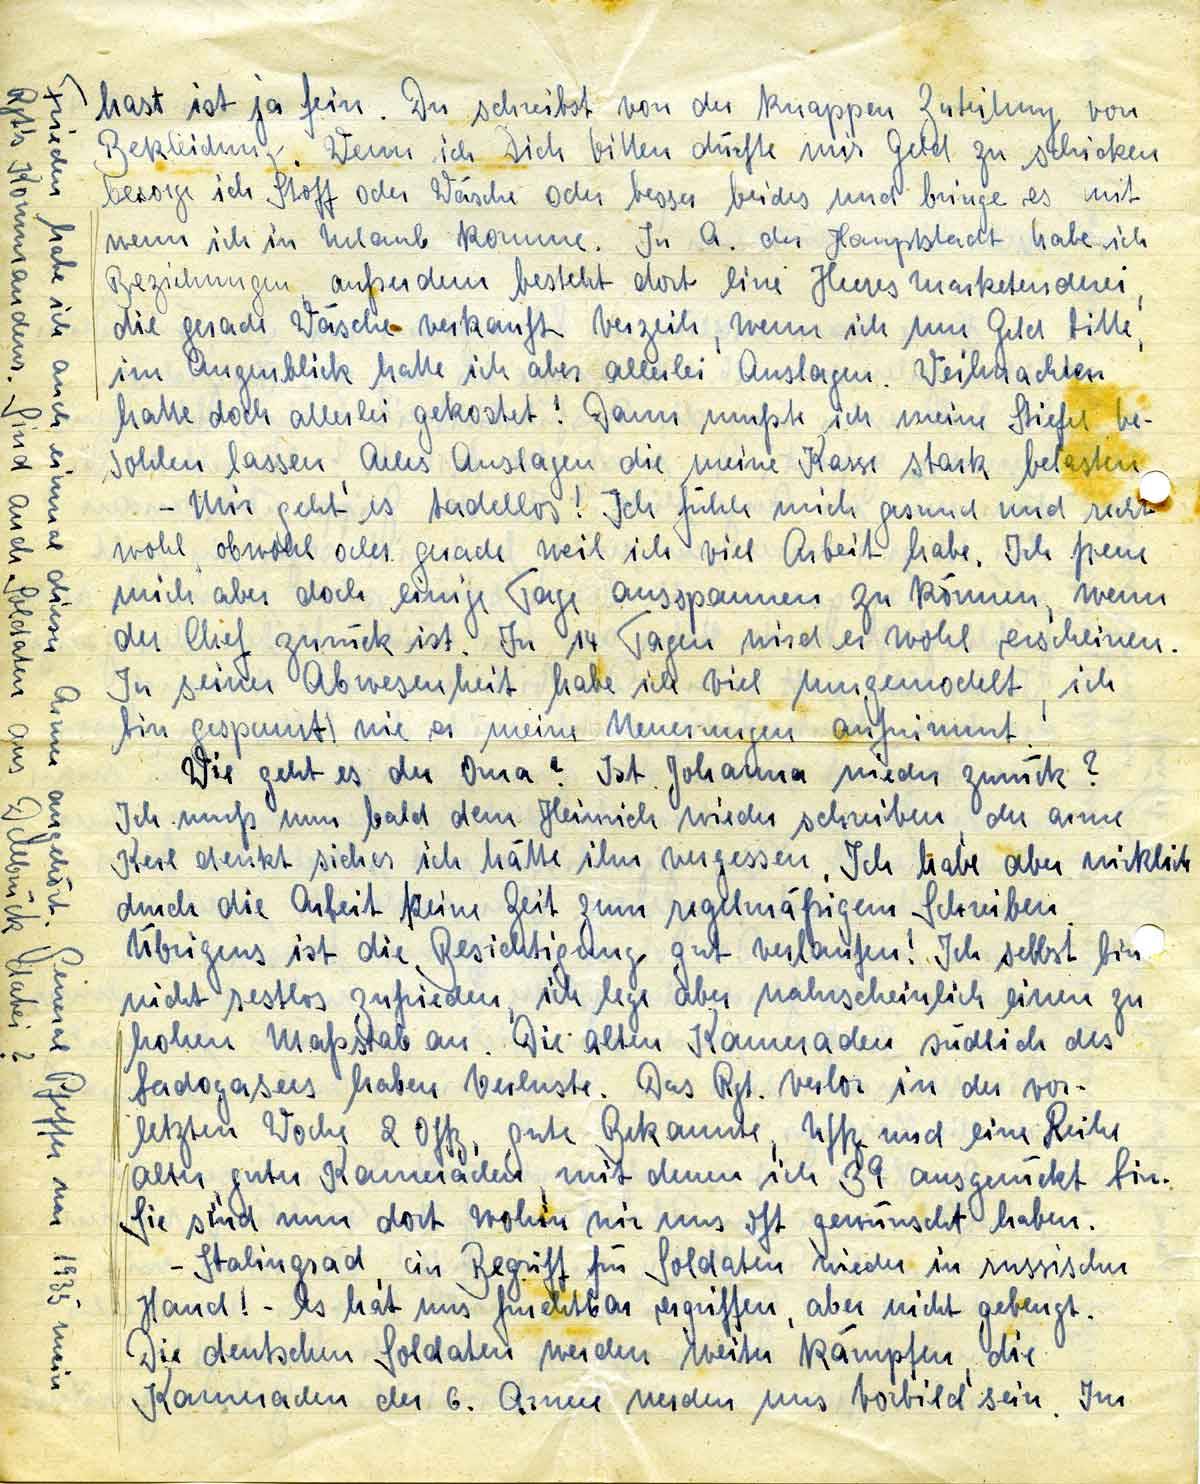 hast ist ja fein. Du schreibst von der knappen Zuteilung von
Bekleidung. Wenn ich Dich bitten dürfte mir Geld zu schicken
besorge ich Stoff oder Wäsche oder besser beides und bringe es mit
wenn ich in Urlaub komme. In A. der Hauptstadt habe ich
Beziehungen, außerdem besteht dort eine Heeresmarketenderei,
die gerade Wäsche verkauft. Verzeih, wenn ich um Geld bitte,
im Augenblick hatte ich aber allerlei Auslagen. Weihnachten
hatte doch allerlei gekostet! Dann mußte ich meine Stiefel be-
sohlen lassen, Alles Auslagen die meine Kasse stark belasten
- Mir geht es tadellos! Ich fühle mich gesund und recht
wohl, obwohl oder gerade weil ich viel Arbeit habe. Ich freue
mich aber doch einige Tage ausspannen zu können, wenn
der Chef zurück ist. In 14 Tagen wird er wohl erscheinen.
In seiner Abwesenheit habe ich viel umgemodelt, ich
bin gespannt, wie er meine Neuerungen aufnimmt.
Wie geht es der Oma? Ist Johanna wieder zurück?
Ich muß nun bald dem Heinrich wieder schreiben, der arme
Kerl denkt sicher ich hätte ihn vergessen. Ich habe aber wirklich
durch die Arbeit keine Zeit zum regelmäßigem Schreiben.
Übrigens ist die Besichtigung gut verlaufen! Ich selbst bin
nicht restlos zufrieden, ich lege aber wahrscheinlich einen zu
hohen Maßstab an. Die alten Kameraden südlich des
Ladogasees haben Verluste. Das Rgt. verlor in der vor-
letzten Woche 2 Offz, gute Bekannte, Uffz und eine Reihe
alter, guter Kameraden, mit denen ich 39 ausgerückt bin.
Sie sind nun dort wohin wir uns oft gewünscht haben.
- Stalingrad, ein Begriff für Soldaten wieder in russischer
Hand! - Es hat uns furchtbar ergriffen, aber nicht gebeugt.
Die deutschen Soldaten werden weiter kämpfen, die
Kameraden der 6. Armee werden uns Vorbild sein. Im
Frieden habe ich auch einmal dieser Armee angehört. General Pfeffer war 1935 mein
Rgt's Kommandeur. Sind auch Soldaten aus Delbrück dabei?